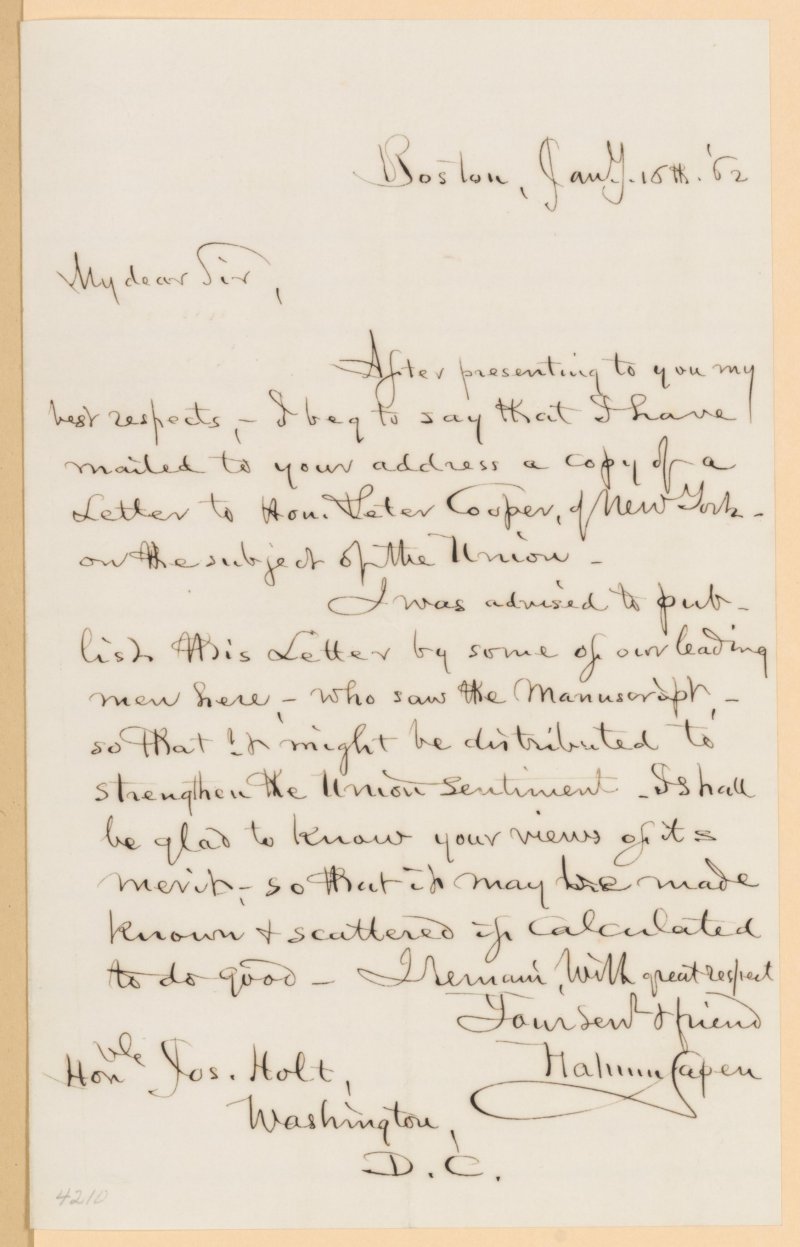 Boston, Jany. 16th. '62
My dear Sir,
After presenting to you my
best respects, - I beg to say that I have
mailed to your address a copy of a
Letter to Hon. Peter Cooper, of New York -
on the subject of the Union -
I was advised to pub-
lish this Letter by some of our leading
men here, - who saw the Manuscript, -
so that it might be distributed to
strengthen the Union sentiment - I shall
be glad to know your views of its
merit, - so that it may be made
known & scattered if calculated
to do good - I remain, with great respect
Your servt & friend
Nahum Capen
Honble Jos. Holt,
Washington,
D. C.
4210